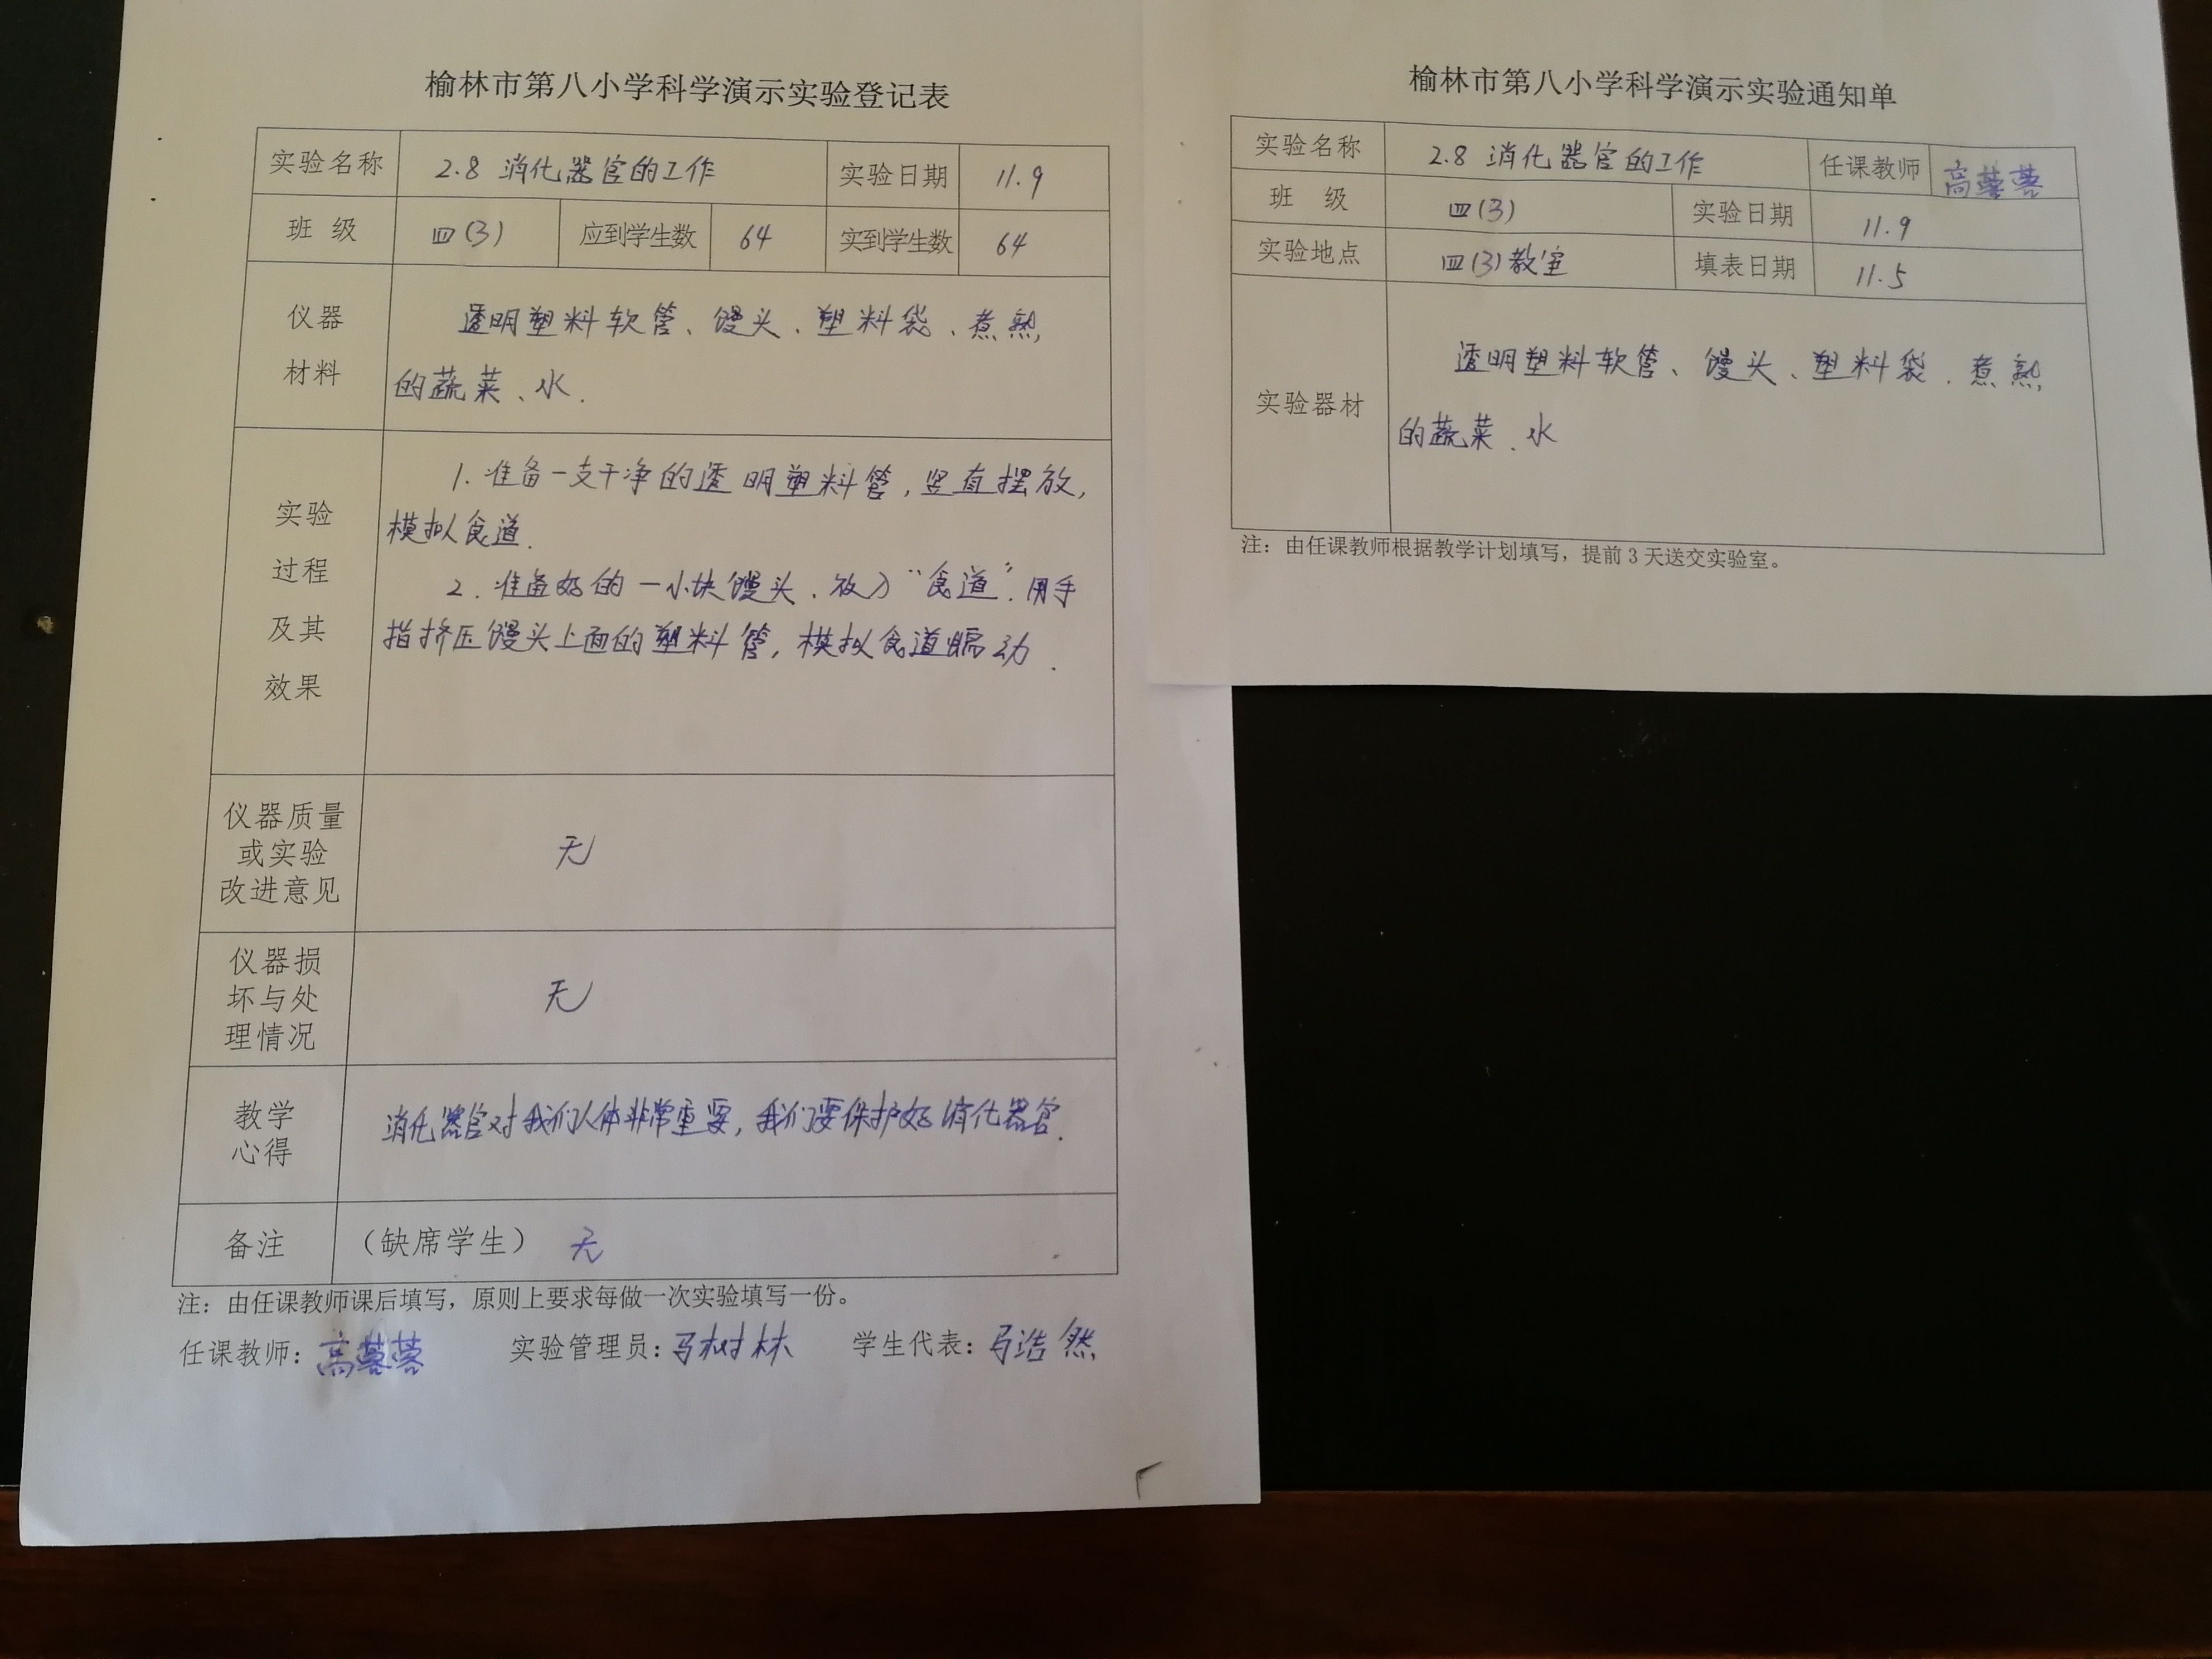 榆林市第八小学科学演示实验登记表
实验名称 2.8 消化器官的工作 实验日期 11.9
班 级 四(3) 应到学生数 64 实到学生数 64
仪器
材料
透明塑料软管、馒头、塑料袋、煮熟
的蔬菜、水.
实验
过程
及其
效果
1.准备一支干净的透明塑料管,竖直摆放,
模拟食道.
2.准备好的一小块馒头.放入“食道”.用手
指挤压馒头上面的塑料管,模拟食道蠕动.
仪器质量
或实验
改进意见
无
仪器损
坏与处
理情况
无
教学
心得
消化器官对我们人体非常重要,我们要保护好消化器官.
备注 (缺席学生) 无
注：由任课教师课后填写，原则上要求每做一次实验填写一份。
任课教师：高蓉蓉 实验管理员：马树林 学生代表：马浩然
榆林市第八小学科学演示实验通知单
实验名称 2.8 消化器官的工作 任课教师 高蓉蓉
班 级 四(3) 实验日期 11.9
实验地点 四(3)教室 填表日期 11.5
实验器材
透明塑料软管、馒头、塑料袋.煮熟
的蔬菜.水
注：由任课教师根据教学计划填写，提前 3 天送交实验室。